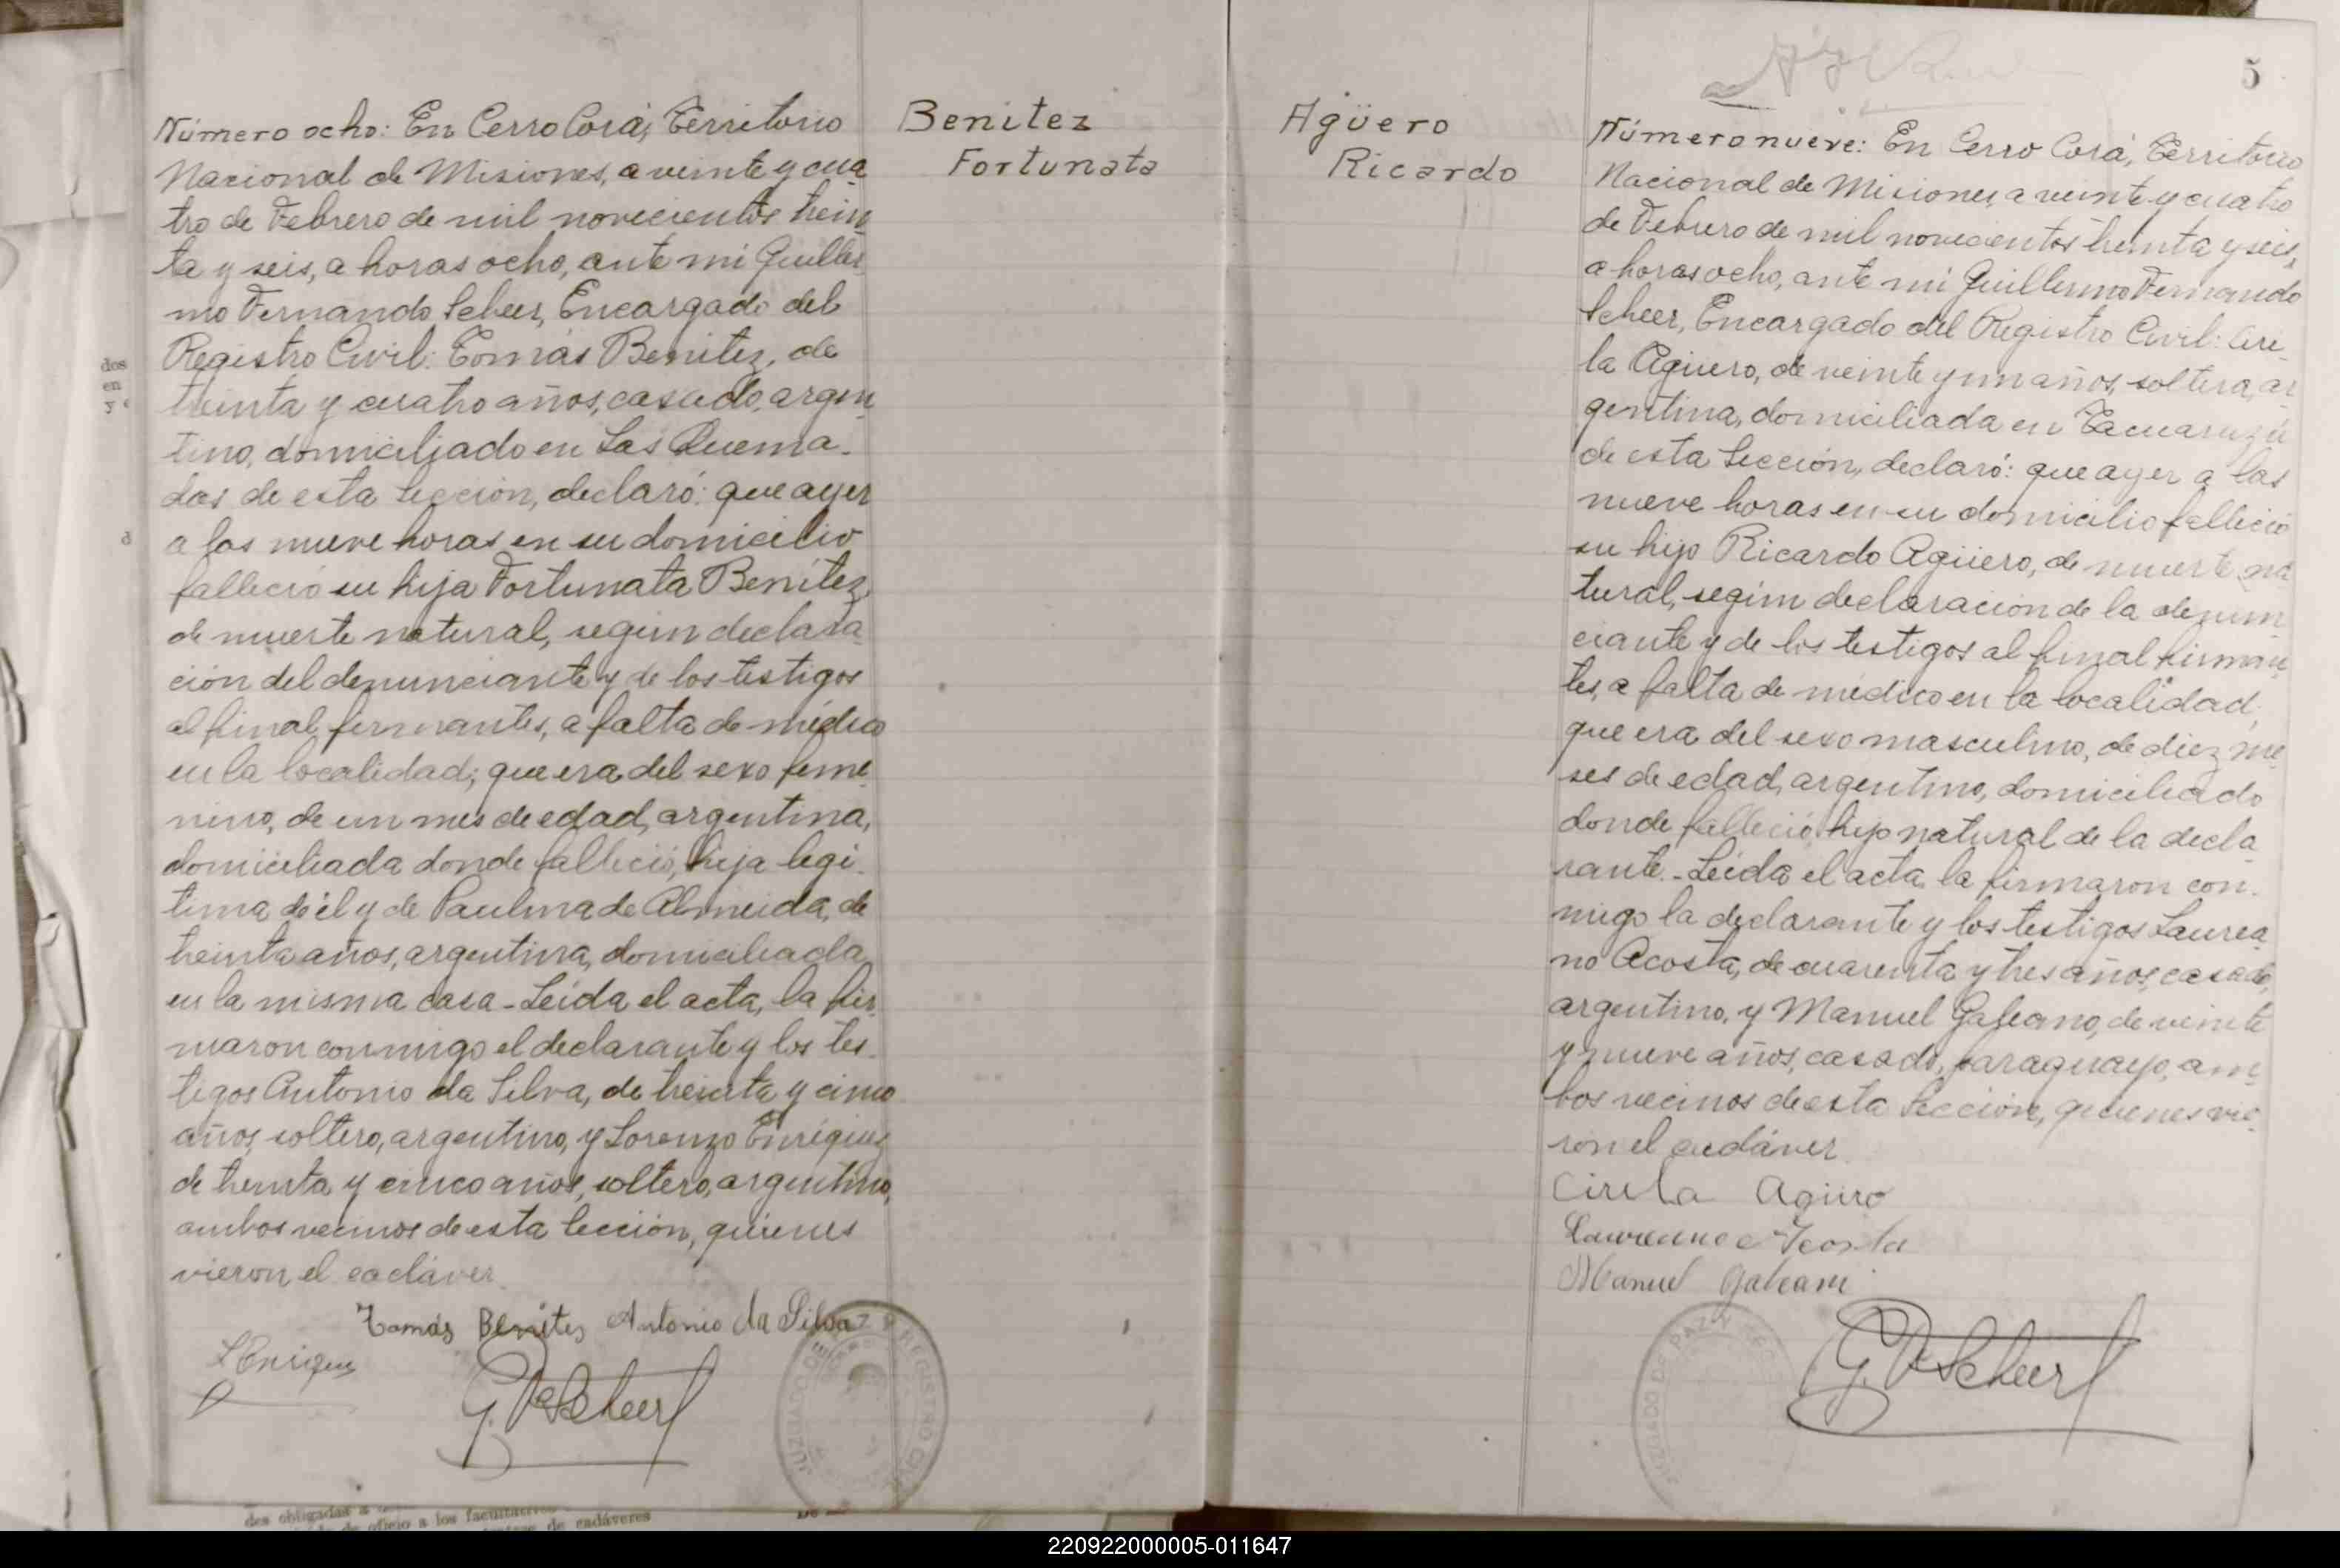 Número ocho: En Cerro Corá, Territorio
Nacional de Misiones, a veinte y cua
tro de Febrero de mil novecientos trein
ta y seis, a horas ocho, ante mi Guiller
mo Fernando Scheer, Encargado del
Registro Civil: Tomás Benitez, de
treinta y cuatro años, casado, argen
tino, domiciliado en Las Quema-
das de esta Sección, declaró: que ayer
a las nueve horas en su domicilio
falleció su hija Fortunata Benítez,
de muerte natural, según declara
ción del denunciante y de los testigos
al final firmantes, a falta de médico
en la localidad; que era del sexo feme
nino, de un mes de edad, argentina,
domiciliada donde falleció, hija legí-
tima de él y de Paulina de Almeida, de
treinta años, argentina, domiciliada
en la misma casa - Leída el acta, la fir
maron conmigo el declarante y los tes-
tigos Antonio da Silva, de treinta y cinco
años, soltero, argentino, y Lorenzo Enriquez
de treinta y cinco años, soltero, argentino,
ambos vecinos de esta Sección, quienes
vieron el cadáver.
Tomás Benítes Antonio da Silva
LEnriquez
G. F Scheer
JUZGADO DE PAZ Y REGISTRO CIVIL
Benitez
Fortunata
Agüero
Ricardo
5
Número nueve: En Cerro Corá, Territorio
Nacional de Misiones, a veinte y cuatro
de Febrero de mil novecientos treinta y seis,
a horas ocho, ante mi Guillermo Fernando
Scheer, Encargado del Registro Civil: Ciri-
la Agüero, de veinte y un años, soltera, ar
gentina, domiciliada en Tacuaruzú
de esta Sección, declaró: que ayer a las
nueve horas en su domicilio falleció
su hijo Ricardo Agüero, de muerte na
tural, según declaración de la denun
ciante y de los testigos al final firman
tes, a falta de médico en la localidad;
que era del sexo masculino, de diez me
ses de edad, argentino, domiciliado
donde falleció, hijo natural de la decla
rante. - Leída el acta, la firmaron con-
migo la declarante y los testigos Laurea
no Acosta, de cuarenta y tres años, casado,
argentino, y Manuel Galeano, de veinte
y nueve años, casado, paraguayo, am
bos vecinos de esta Sección, quienes vie-
ron el cadáver.
Cirila Agüero
Laureano Acosta
Manuel Galeano
G. F Scheer
JUZGADO DE PAZ Y REG
des obligadas a
de oficio a los facultativos
de cadáveres
dos
en
220922000005-011647